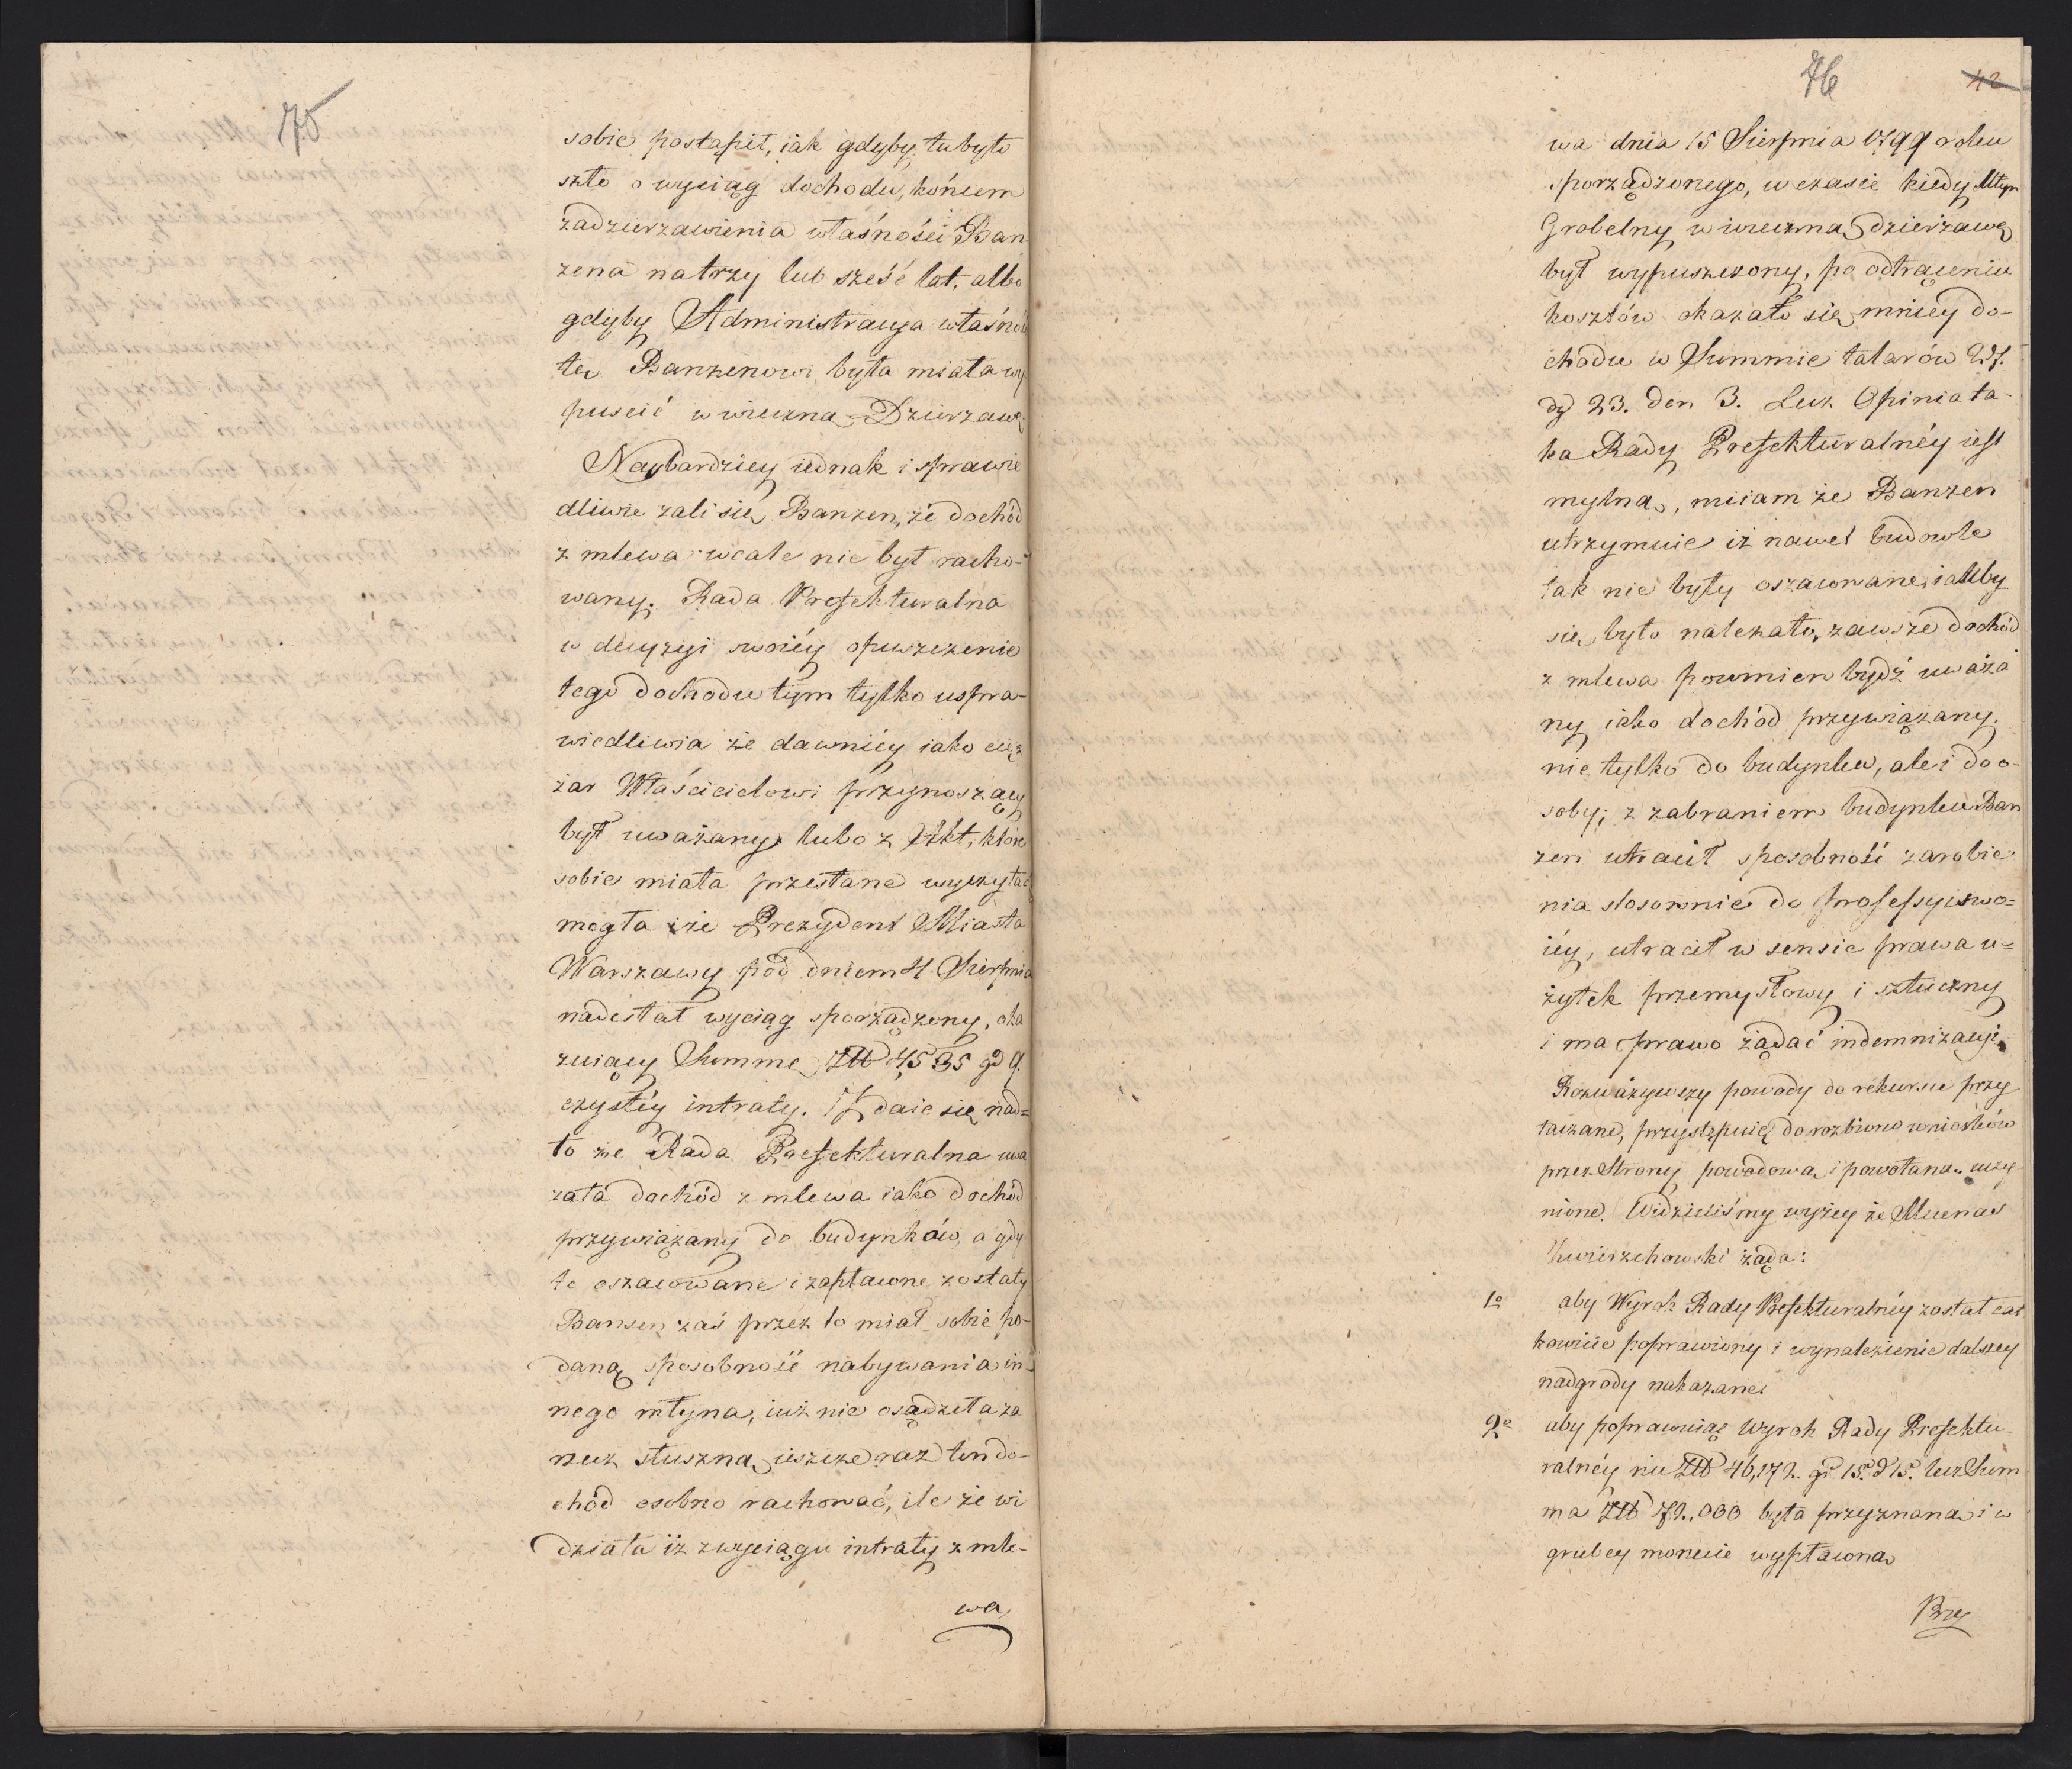 75
sobie postąpił, iak gdyby tu było
szło o wyciąg dochodu, końcem
zadzierzawienia własności Ban
zena na trzy lub sześć lat, albo
gdyby Administracya własnoś
tę Banzenowi była miała wy
puścić w wieczną Dzierzawę
Naybardziey iednak i sprawie
dliwie zali się Banzen, że dochód
z mlewa wcale nie był racho-
wany. Rada Prefekturalna
w decyzyi swoiéy opuszczenie
tego dochodu tym tylko uspra-
wiedliwia że dawniéy iako cię
żar Właścicielowi przynoszący
był uważany, lubo z Akt, które
sobie miała przesłane wyczytać
mogła iże Prezydent Miasta
Warszawy pod dniem 4 Sierpnia
nadesłał wyciąg sporządzony, oka
zuiący Summę Złł 4535 gr 9.
czystéy intraty. Zdaie się nad=
to że Rada Prefekturalna uwa
zała dochód z mlewa iako dochód
przywiązany do budynków, a gdy
te oszacowane i zapłacone zostały
Bansen zaś przez to miał sobie po-
daną sposobność nabywania in-
nego młyna, iuż nie osądziła za
rzecz słuszną ieszcze raz ten do-
chód osobno rachować, ile że wi
działa iż z wyciągu intraty z mle-
wa
76
42
wa dnia 15 Sierpnia 1799 roku
sporządzonego, w czasie kiedy Młyn
Grobelny w wieczną dzierżawę
był wypuszczony, po odtrąceniu
kosztów okazało się mniéy do-
chodu w Summie talarów 27.
dg 23. den 3. Lecz Opinia ta-
ka Rady Prefekturalnéy iest
mylną, miiam że Banzen
utrzymuie iż nawet budowle
tak nie były oszacowane, iakby
się było należało, zawsze dochód
z mlewa powinien bydź uważa
ny iako dochód przywiązany
nie tylko do budynku, ale i do o-
soby; z zabraniem budynku Ban
zen utracił sposobność zarobie
nia stosownie do professyi swo=
iéy, utracił w sensie prawa u=
żytek przemysłowy i sztuczny
i ma prawo żądać indemnizacyi.
Rozważywszy powody do rekursu przy
taczane, przystępuię do rozbioru wniosków
przez Strony powodową i powołaną uczy
nione. Widzieliśmy wyżey że Mecenas
Kwierzchowski żąda:
1o aby Wyrok Rady Prefekturalnéy został cał
kowicie poprawiony i wynalezienie dalszey
nadgrody nakazane.
2o aby poprawuiąc Wyrok Rady Prefektu-
ralnéy nie Złł 46,172. gr 15. d 15. lecz Sum
ma Złł 72,000 była przyznana i w
grubey monecie wypłacona
Przy